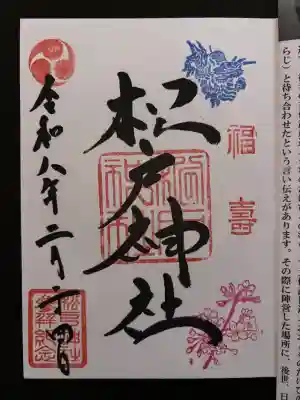 らじ）と待ち合わせたという言い伝えがあります。その際に陣営した場所に、後世、日
福壽
松戸神社
松戸神社
令和八年二月二十四日
松戸神社
参拝記念